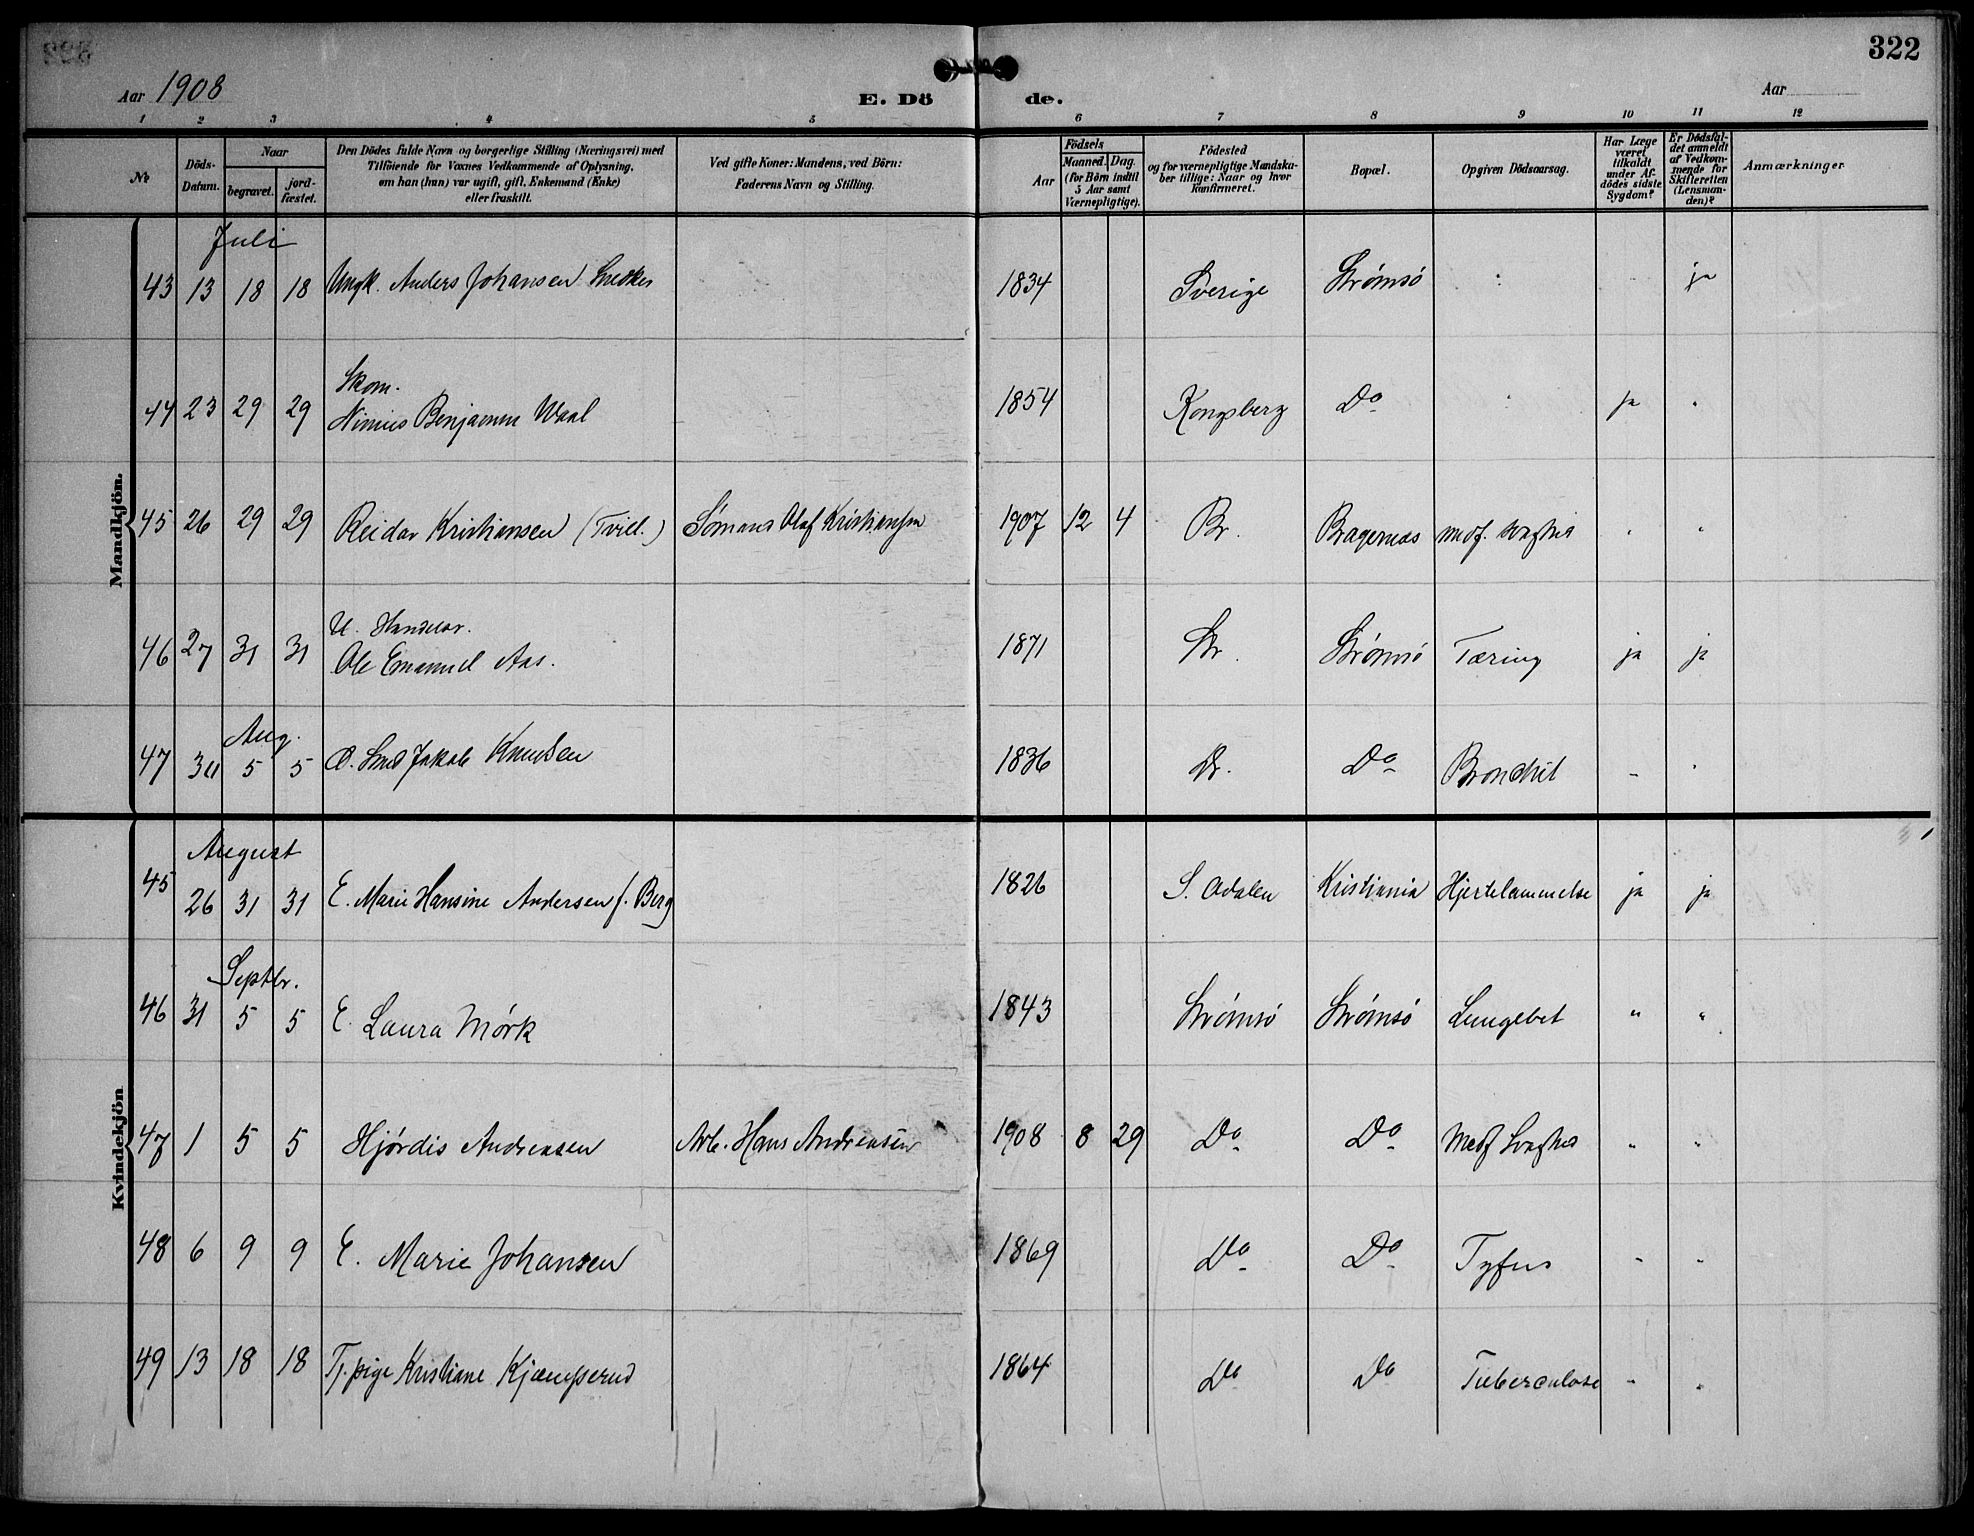 322
Aar 1908
E. Dö de.
Aar
1 2 3 4 5 6 7 8 9 10 11 12
No
Döds-Datum.
Naar
begravet.
jord-fæstet.
Den Dödes fulde Navn og borgerlige Stilling (Næringsvei) med
Tilföiende for Voxnes Vedkommende af Oplysning,
om han (hun) var ugift, gift, Enkemand (Enke)
eller fraskilt.
Ved gifte Koner: Mandens, ved Börn:
Faderens Navn og Stilling.
Födsels
Aar
Maaned. Dag.
(for Börn indtil
5 Aar samt
Værnepligtige).
Födested
og for værnepligtige Mandska-
ber tillige: Naar og hvor
konfirmeret.
Bopæl.
Opgiven Dödsaarsag.
Har Læge
været
tilkaldt
under Af-
dödes sidste
Sygdom?
Er Dödsfal-
det anmeldt
af Vedkom-
mende for
Skifteretten
(Lensman-
den)?
Anmærkninger.
Mandkjön.
Juli
43 13 18 18 Ungk. Anders Johansen Snedker 1834 Sverige Strømsö " ja
Skom.
44 23 29 29 Benjamin Waal 1854 Kongsberg Do " ja "
45 26 29 29 Reidar Kristiansen (Tvill.) Sømand Olaf Kristiansen 1907 12 4 Br. Bragernæs medf. svaghed " "
U. Handelsr.
46 27 31 31 Ole Emanuel Aas. 1871 Str. Strømsö Tæring ja ja
Aug.
47 30 5 5 Smed Jakob Knudsen 1836 Dr. Do Bronchit " "
Kvindekjön
August
45 26 31 31 E. Marie Hansine Andersen f. Berg 1826 S. Odalen Kristiania Hjertelammelse ja ja
Septbr.
46 31 5 5 E. Laura Mørk 1843 Strømsö Strømsö Lungebet " "
47 1 5 5 Hjørdis Andreasen Arb. Hans Andreasen 1908 8 29 Do Do Medf Svaghed " "
48 6 9 9 E. Marie Johansen 1869 Do Do Tyfus " "
49 13 18 18 Tj.pige Kristiane Kjæmperud 1864 Do Do Tuberculose " "